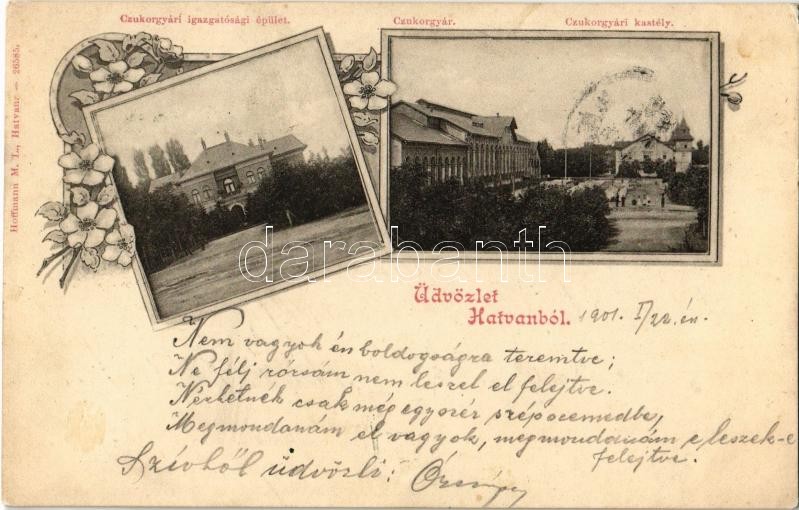 Czukorgyári igazgatósági épület.
Czukorgyár.
Czukorgyári kastély.
Hoffmann M. L., Hatvan. — 26585.
darabanth
Üdvözlet
Hatvanból.
1901. I/22. én.
Nem vagyok én boldogságra teremtve;
Ne félj rózsám nem leszel el felejtve.
Nézhetnék csak még egyszer szép szemedbe,
Megmondanám el vagyok, megmondanám e leszek-e
felejtve.
Szívből üdvözli: